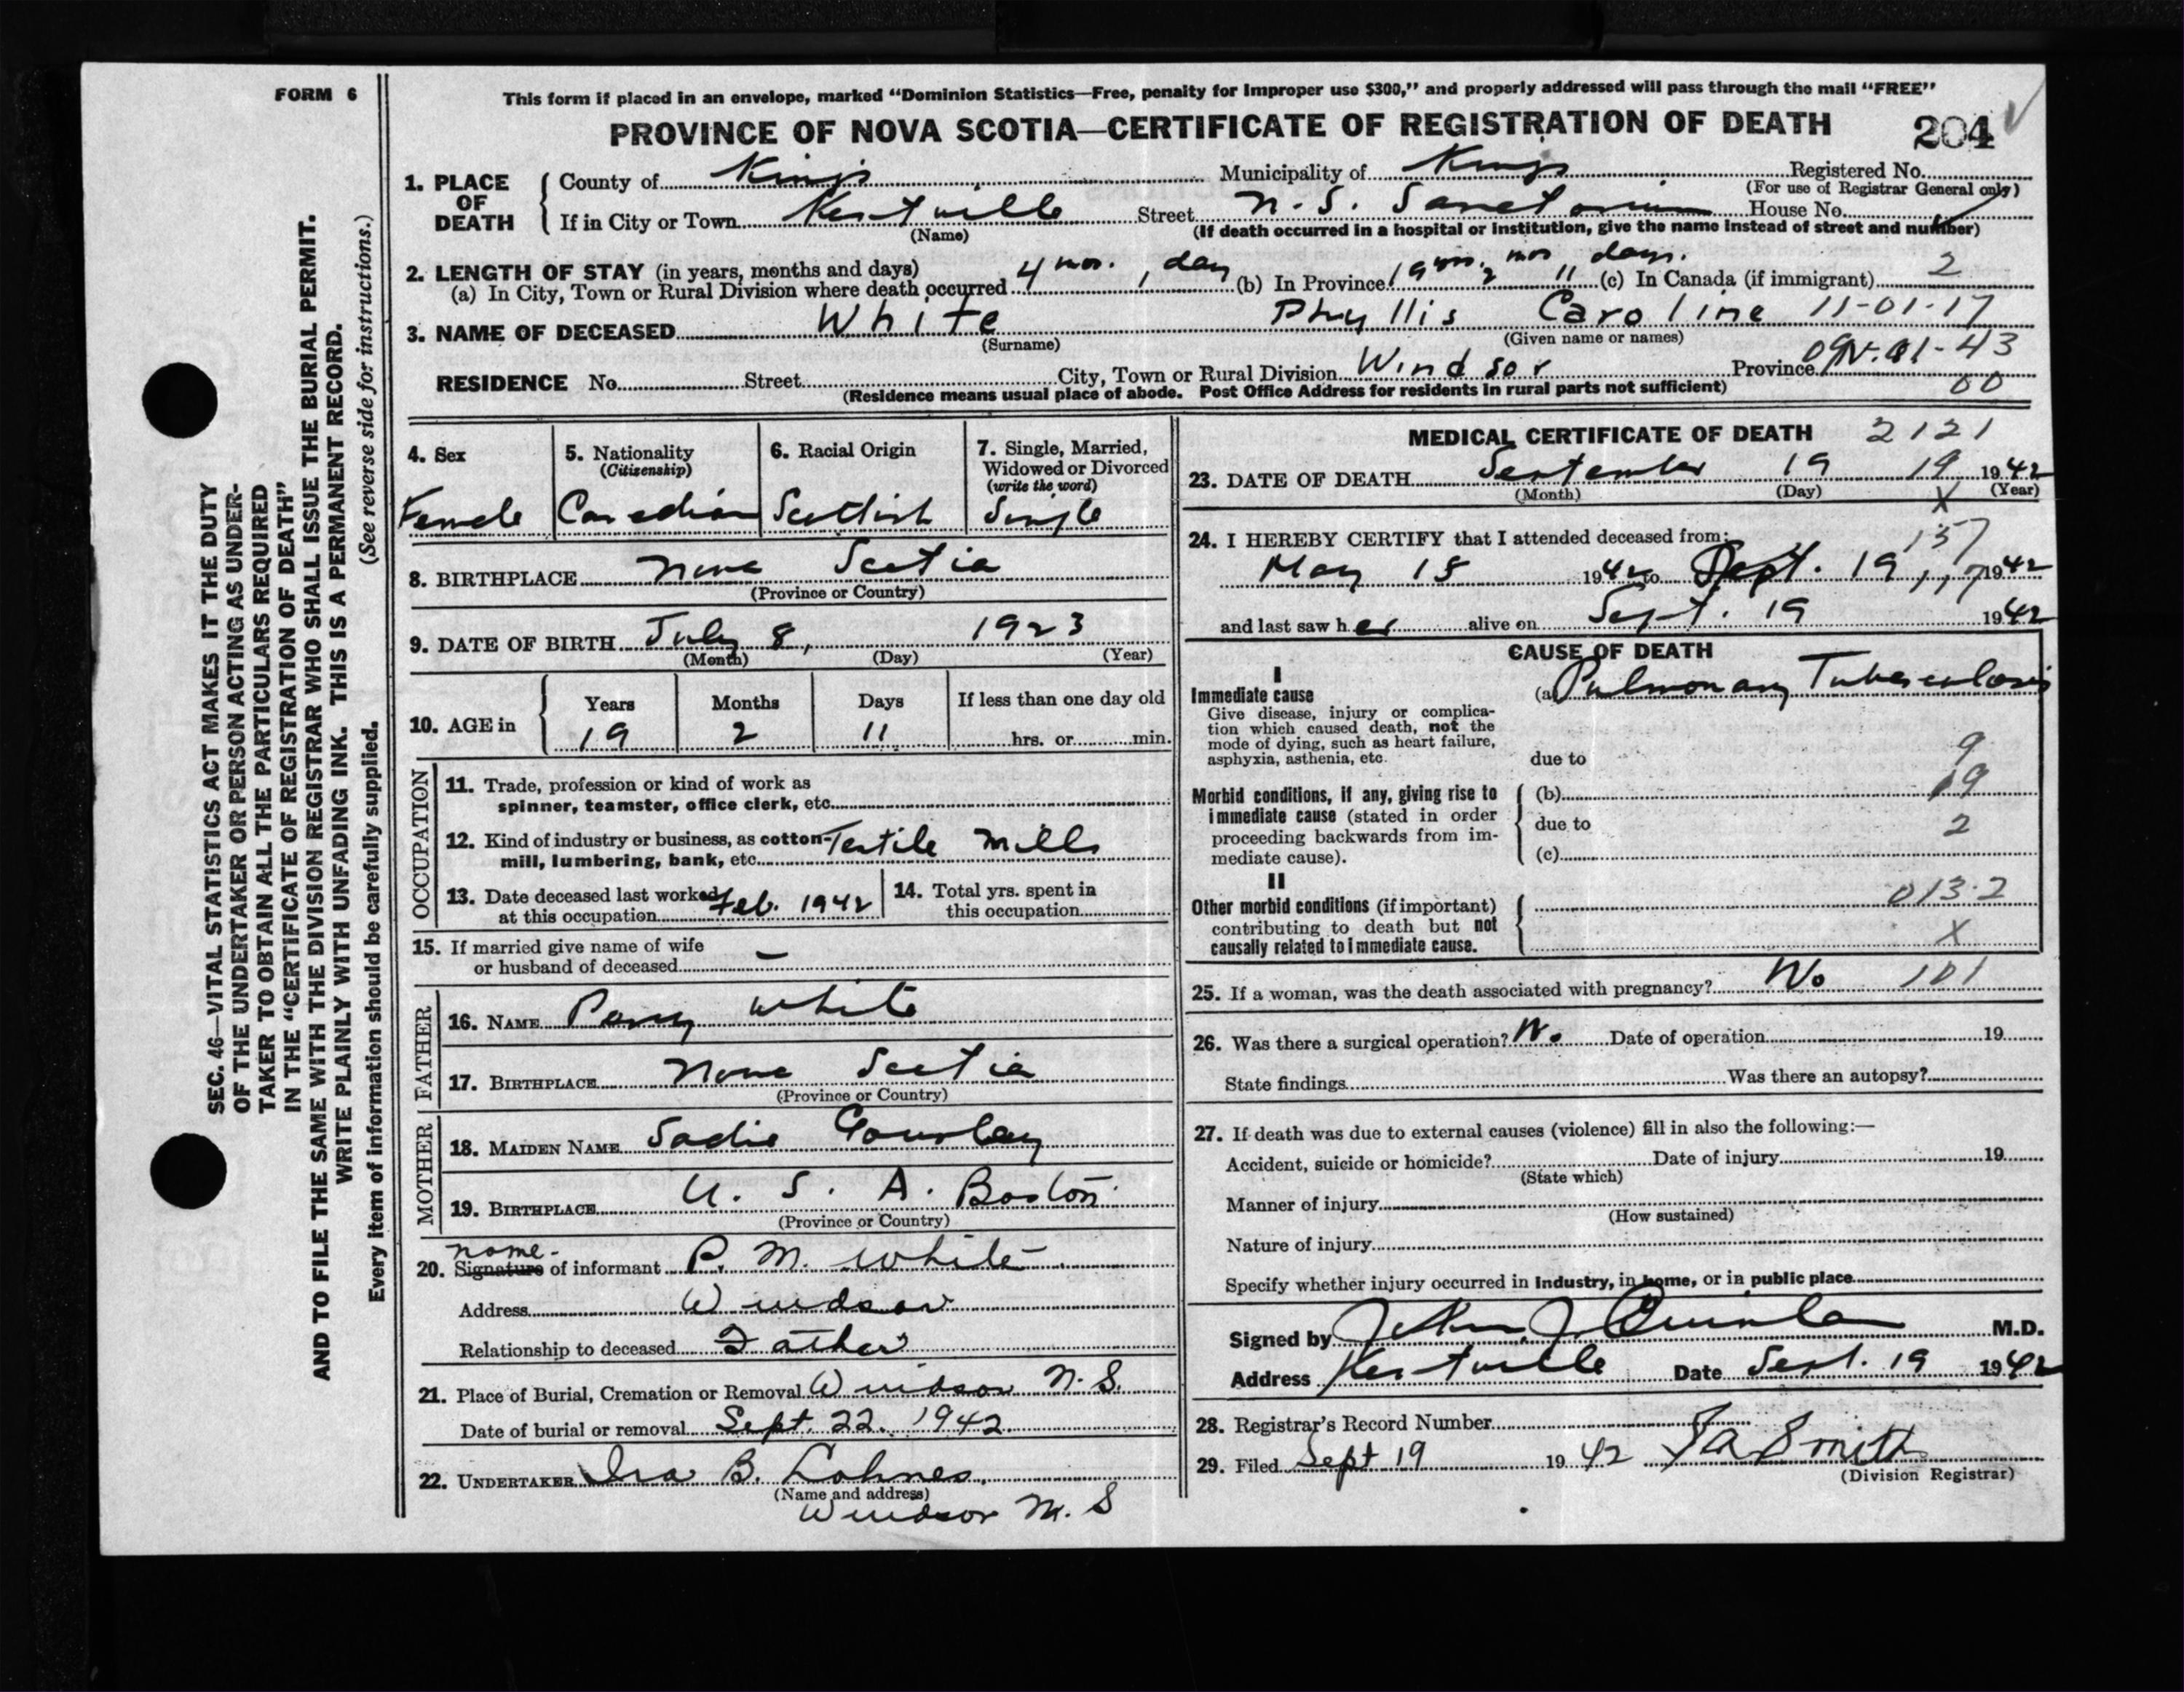 FORM 6
This form if placed in an envelope, marked “Dominion Statistics—Free, penalty for improper use $300,” and properly addressed will pass through the mail “FREE”
PROVINCE OF NOVA SCOTIA—CERTIFICATE OF REGISTRATION OF DEATH 204
1. PLACE OF DEATH
County of Kings Municipality of Kings Registered No.
(For use of Registrar General only)
If in City or Town Kentville Street N. S. Sanatorium House No.
(Name) (If death occurred in a hospital or institution, give the name instead of street and number)
2. LENGTH OF STAY (in years, months and days)
(a) In City, Town or Rural Division where death occurred 4 mos. 1 day (b) In Province 19 yrs. 2 mos 11 days. (c) In Canada (if immigrant) 2
3. NAME OF DECEASED White Phyllis Caroline 11-01-17
(Surname) (Given name or names)
RESIDENCE No. Street City, Town or Rural Division Windsor Province 01-43
(Residence means usual place of abode. Post Office Address for residents in rural parts not sufficient) 00
4. Sex
Female
5. Nationality
(Citizenship)
Canadian
6. Racial Origin
Scottish
7. Single, Married,
Widowed or Divorced
(write the word)
Single
8. BIRTHPLACE Nova Scotia
(Province or Country)
9. DATE OF BIRTH July 8, 1923
(Month) (Day) (Year)
10. AGE in
Years Months Days If less than one day old
19 2 11 hrs. or min.
OCCUPATION
11. Trade, profession or kind of work as
spinner, teamster, office clerk, etc.
12. Kind of industry or business, as cotton- Textile Mills
mill, lumbering, bank, etc.
13. Date deceased last worked
at this occupation Feb. 1942
14. Total yrs. spent in
this occupation
15. If married give name of wife
or husband of deceased —
FATHER
16. NAME Percy White
17. BIRTHPLACE Nova Scotia
(Province or Country)
MOTHER
18. MAIDEN NAME Sadie Gourley
19. BIRTHPLACE U. S. A. Boston
(Province or Country)
name-
20. Signature of informant P. M. White
Address Windsor
Relationship to deceased Father
21. Place of Burial, Cremation or Removal Windsor N. S.
Date of burial or removal Sept. 22. 1942.
22. UNDERTAKER Ira B. Lohnes,
(Name and address)
Windsor N. S
MEDICAL CERTIFICATE OF DEATH 2121
23. DATE OF DEATH September 19 19 1942
(Month) (Day) (Year)
X
24. I HEREBY CERTIFY that I attended deceased from:
157
May 18 1942 to Sept. 19 1942
and last saw her alive on Sept. 19 1942
CAUSE OF DEATH
I
Immediate cause
Give disease, injury or complica-
tion which caused death, not the
mode of dying, such as heart failure,
asphyxia, asthenia, etc.
(a) Pulmonary Tuberculosis
due to 9
Morbid conditions, if any, giving rise to
immediate cause (stated in order
proceeding backwards from im-
mediate cause).
(b) 19
due to 2
(c)
II
Other morbid conditions (if important)
contributing to death but not
causally related to immediate cause.
013.2
X
25. If a woman, was the death associated with pregnancy? No 101
26. Was there a surgical operation? No Date of operation 19
State findings Was there an autopsy?
27. If death was due to external causes (violence) fill in also the following:—
Accident, suicide or homicide? Date of injury 19
(State which)
Manner of injury
(How sustained)
Nature of injury
Specify whether injury occurred in industry, in home, or in public place
Signed by John J. Quinlan M.D.
Address Kentville Date Sept. 19 1942
28. Registrar's Record Number
29. Filed Sept 19 1942 Smith
(Division Registrar)
SEC. 46—VITAL STATISTICS ACT MAKES IT THE DUTY
OF THE UNDERTAKER OR PERSON ACTING AS UNDER-
TAKER TO OBTAIN ALL THE PARTICULARS REQUIRED
IN THE “CERTIFICATE OF REGISTRATION OF DEATH”
AND TO FILE THE SAME WITH THE DIVISION REGISTRAR WHO SHALL ISSUE THE BURIAL PERMIT.
WRITE PLAINLY WITH UNFADING INK. THIS IS A PERMANENT RECORD.
Every item of information should be carefully supplied. (See reverse side for instructions.)